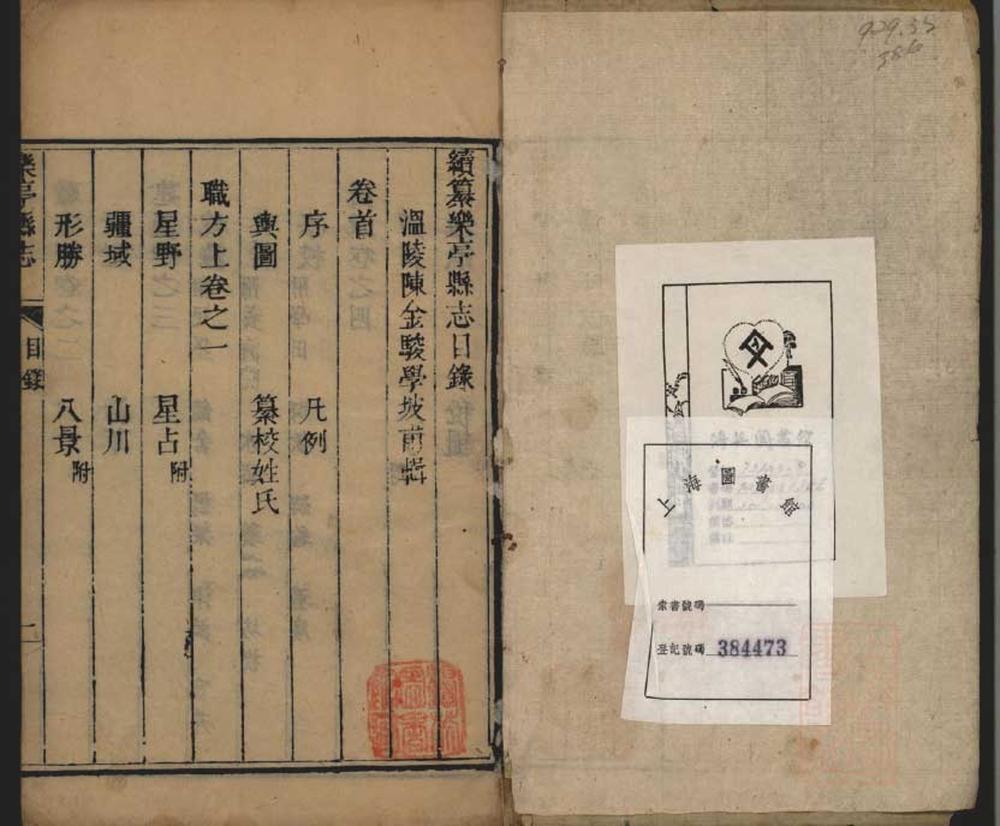 續纂樂亭縣志目錄
溫陵陳金駿學坡甫輯
卷首
序 凡例
輿圖 纂校姓氏
職方上卷之一
星野 星占附
疆域 山川
形勝 八景附
樂亭縣志
目錄
一
929.35
386
上海圖書館
索書號碼
登記號碼 384473